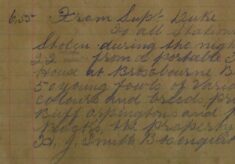 6.55 From Supt. Duke
to all Stations
Stolen during the nigh
22 — from a portable
House at Broxbourne B
50 young fowls of vario
colours and breeds pr
Buff Orpingtons and
the property
H. J. Smith